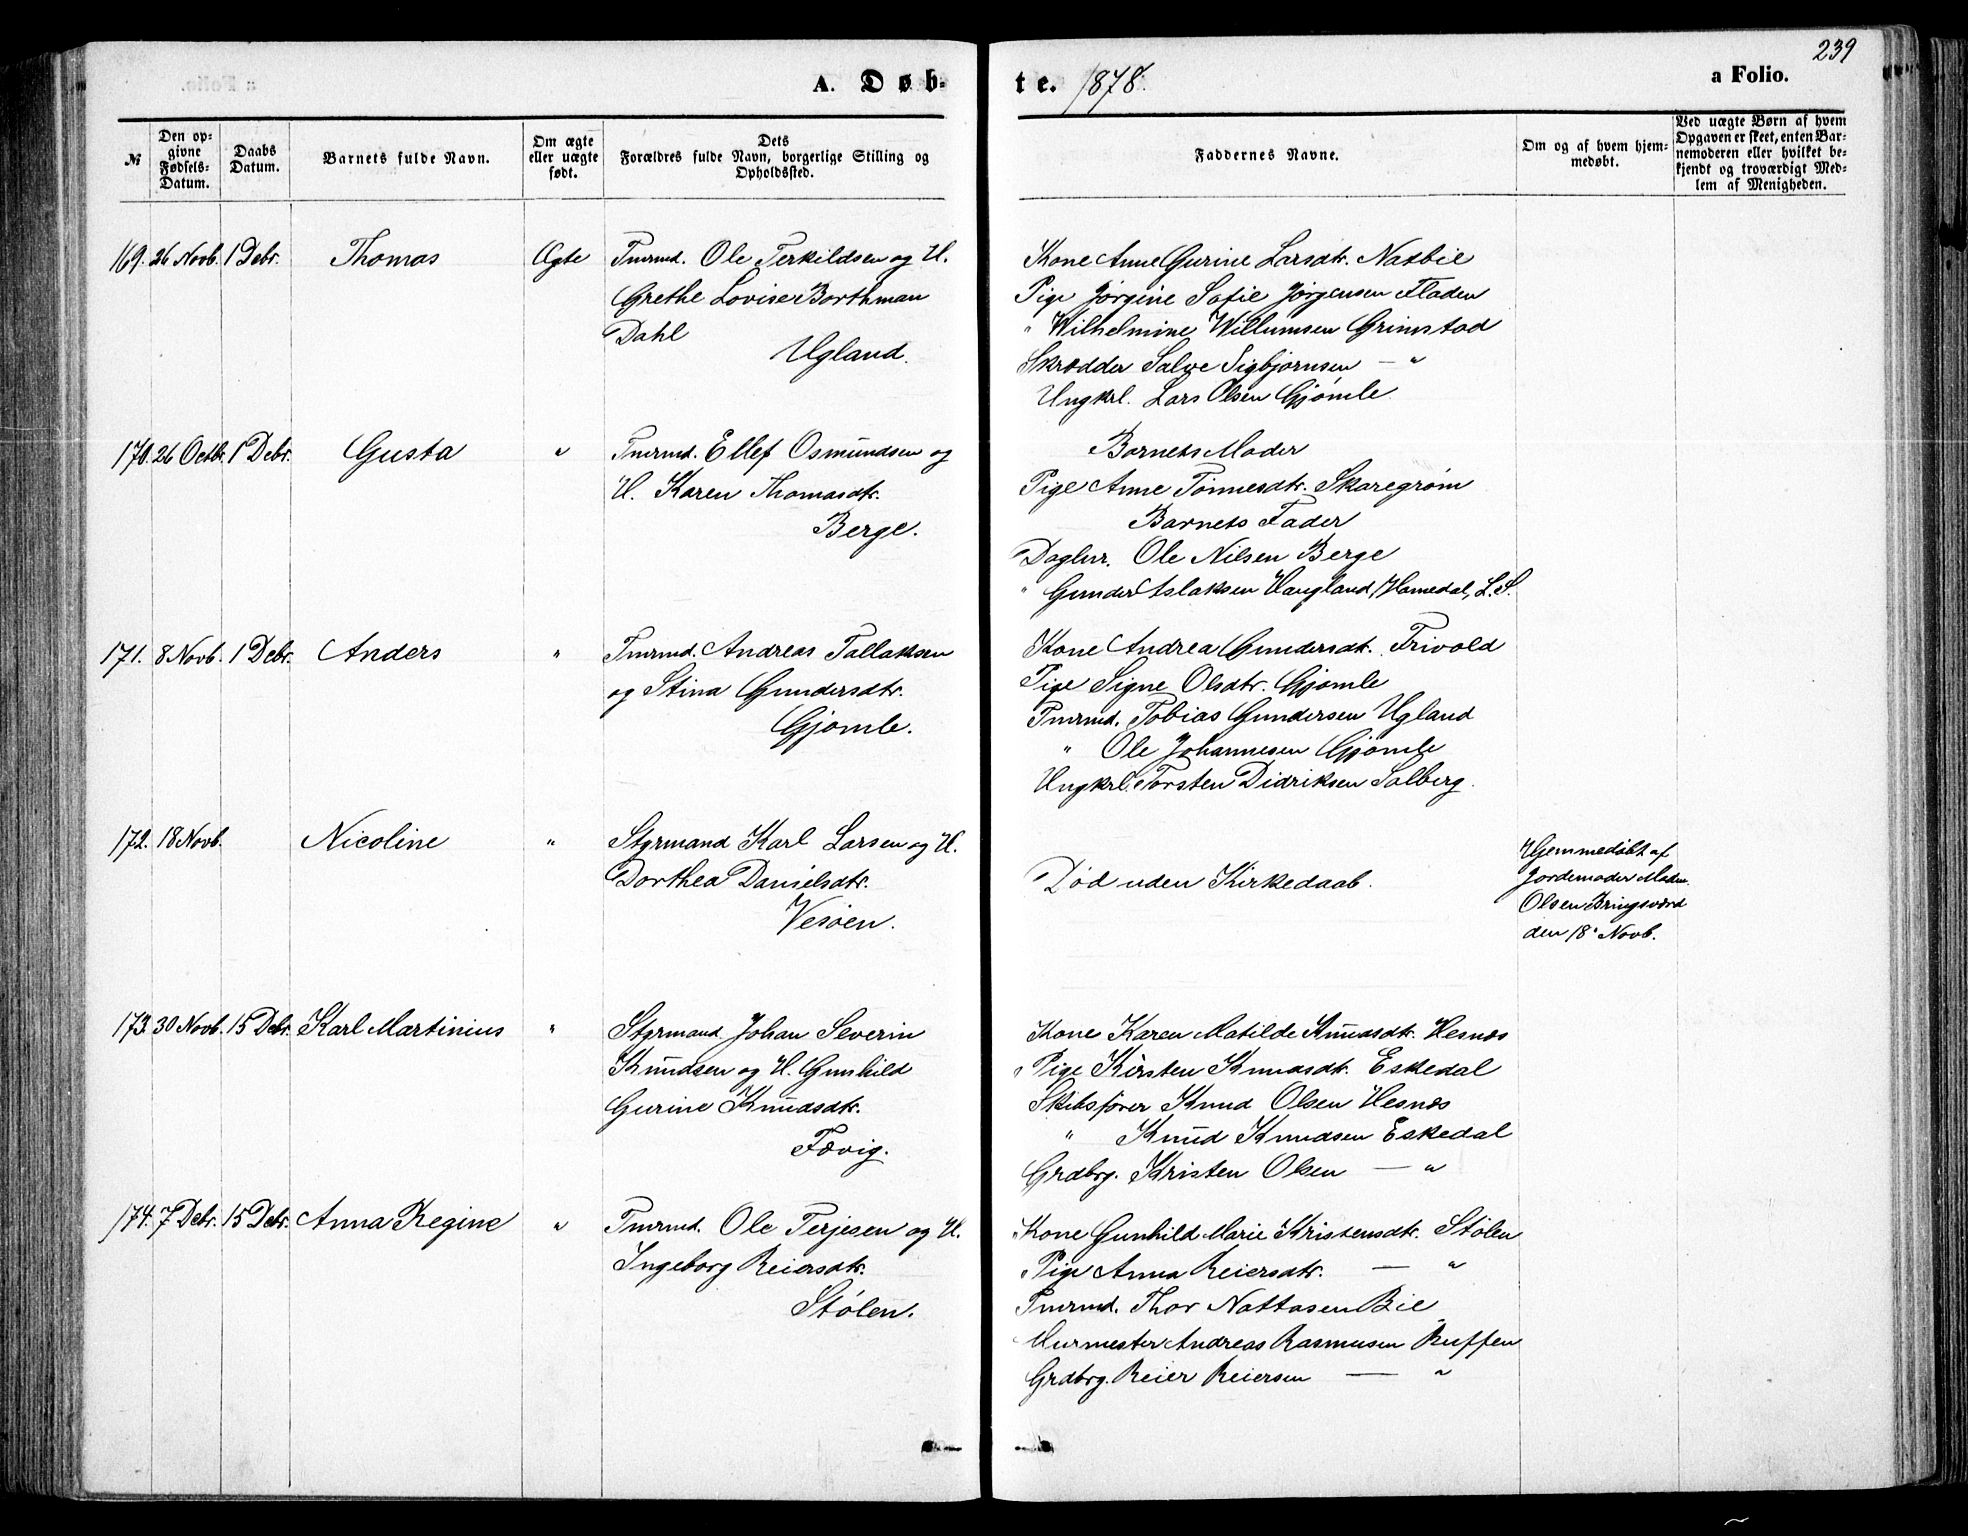 239
A. Døb-
te. 1878.
a Folio.
№
Den opgivne Fødsels-Datum.
Daabs Datum.
Barnets fulde Navn.
Om ægte eller uægte født.
Dets Forældres fulde Navn, borgerlige Stilling og Opholdssted.
Faddernes Navne.
Om og af hvem hjemmedøbt.
Ved uægte Børn af hvem Opgaven er skeet, enten Barnemoderen eller hvilket bekjendt og troværdigt Medlem af Menigheden.
169. 26 Novb. 1 Debr. Thomas Ægte Tmrmd. Ole Terkildsen og H.
Grethe Lovise Borthman
Dahl
Ugland.
Kone Anne Gurine Larsdtr. Natbie
Pige Jørgine Sofie Jørgensen Fladen
" Wilhelmine Willumsen Grimstad
Skrædder Salve Sigbjørnsen — "
Ungkrl. Lars Olsen Gjømle
170. 26 Octb. 1 Debr. Gusta " Tmrmd. Ellef Osmundsen og
H. Karen Thomasdtr.
Berge.
Barnets Moder
Pige Anne Tønnesdtr. Skaregrøm
Barnets Fader
Daglnr. Ole Nilsen Berge
" Gunder Aslaksen Haugland, Homedal, L.S.
171. 8 Novb. 1 Debr. Anders " Tmrmd. Andreas Tallaksen
og Stina Gundersdtr.
Gjømle.
Kone Andrea Gundersdtr. Frivold
Pige Signe Olsdtr. Gjømle
Tmrmd. Tobias Gundersen Ugland
" Ole Johannesen Gjømle
Ungkrl. Torsten Didriksen Solberg.
172. 18 Novb. Nicoline " Styrmand Karl Larsen og H.
Dorthea Danielsdtr.
Vesøen.
Død uden Kirkedaab.
Hjemmedøbt af
Jordemoder Madm.
Olsen Bringsværd
den 18 Novb.
173. 30 Novb. 15 Debr. Karl Martinius " Styrmand Johan Severin
Knudsen og H. Gunhild
Gurine Knudsdtr.
Fævig.
Kone Karen Matilde Knudsdtr. Hesnæs
Pige Kirsten Knudsdtr. Eskedal
Skibsfører Knud Olsen Hesnæs
" Knud Knudsen Eskedal
Grdbrg. Kristen Olsen — "
174. 7 Debr. 15 Debr. Anna Regine " Tmrmd. Ole Terjesen og H.
Ingeborg Reiersdtr.
Stølen.
Kone Gunhild Marie Kristensdtr. Stølen
Pige Anna Reiersdtr. — "
Tmrmd. Thor Nattasen Bie
Murmester Andreas Rasmusen Buffen
Grdbrg. Reier Reiersen — "